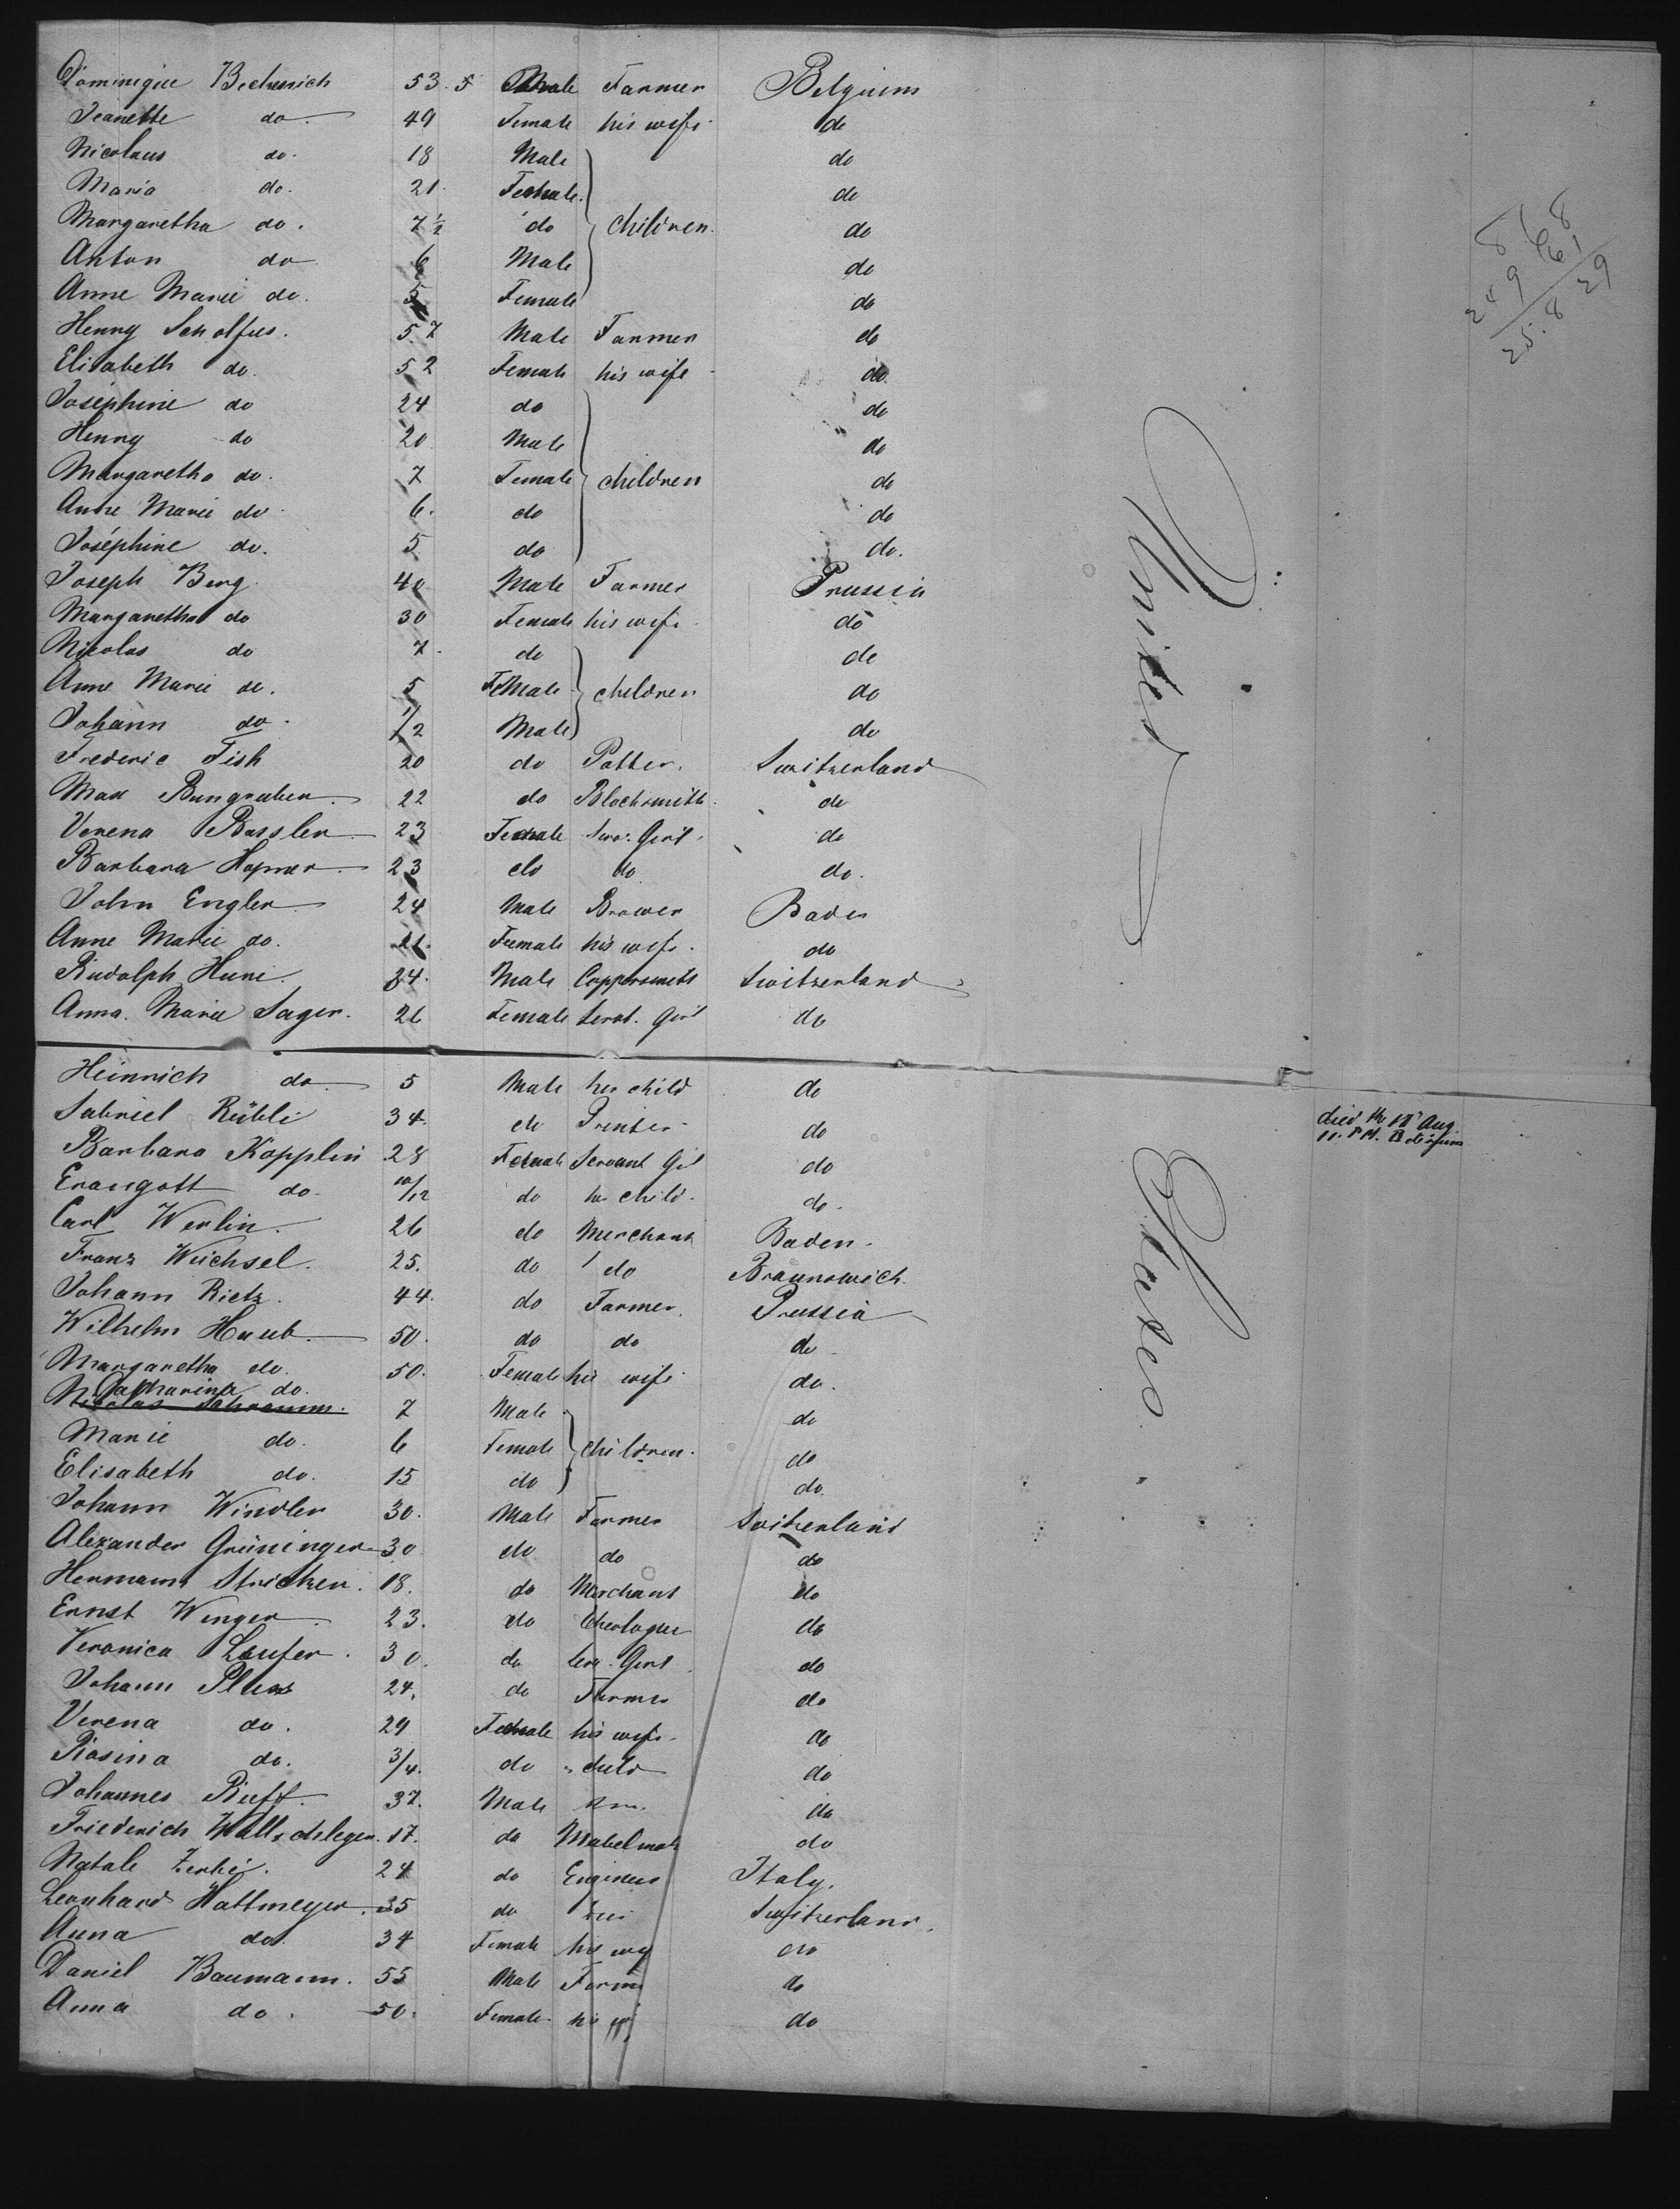 Dominique Bechmich 53.5 Male Farmer Belguim
Jeanette do 49 Female his wife do
Nicolaus do. 18 Male do
Maria do. 21 Female do
Margaretha do. 7½ do children. do
Anton do 6 Male do
Anne Marie do. 5 Female do
Henry Scholfus. 57 Male Farmer do
Elisabeth do. 52 Female his wife do.
Joséphine do 24 do do
Henry do 20 Male do
Margaretha do. 7 Female children do
Anne Marie do 6. do do
Joséphine do. 5 do do.
Joseph Berg 40 Male Farmer Prussia
Margaretha do 30 Female his wife do
Nicolas do 7. do do
Anne Marie do. 5 Female children do
Johann do. 1/2 Male do
Frederic Fish 20 do Potter. Switzerland
Max Bungruber. 22 do Blacksmith do
Verena Bassler 23 Female Serv: Girl. do
Barbara 23 do do do.
John Engler 24 Male Brewer Baden
Anne Marie do. 21. Female his wife. do
Rudolph Huni. 24. Male Coppersmith Switzerland
Anna. Marie Sager. 26 Female Servt. Girl do
United
8 68
249 61
25.8 29
Heinrich do. 5 Male her child do
died the 18 Aug.
11. P.M. Beligium
Gabriel Rübli 34. do Printer do
Barbara Kopplin 28 Female Servant Girl do
do. 10/12 do her child. do.
Carl Werlin. 26 do Merchant Baden.
Franz Weichsel. 25. do do Braunswich.
Johann Rietz. 44. do Farmer. Prussia
Wilhelm Haub. 50. do do do
Margaretha do. 50. Female his wife do.
Catharina do.
Nicolas Schramm. 7 Male do
Marie do. 6 Female children. do
Elisabeth do. 15 do do.
Johann Windler 30. Male Farmer Switzerland
Alexander Grüninger 30 do do do
Hermann Stricker. 18. do Merchant do
Ernst Wenger 23. do theologue do
Veronica Laufer. 30. do Serv. Girl do
Johann Pluss 24. do Farmer do
Verena do. 29 Female his wife. do
Rosina do. 3/4. do " child do
Johannes Rieff. 37. Male do
Friederich Wallschleger. 17. do do
Natale Zerbi. 24 do Engineer Italy.
Leonhard Hattmeyer. 35 do Switzerland.
Anna do. 34 Female his do
Daniel Baumann. 55 Male Farm do
Anna do. 50. Female his do
States